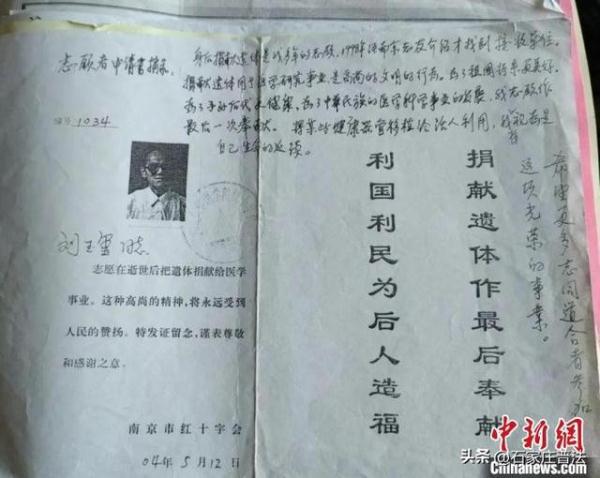 志愿者申请书摘录
身后捐献遗体是我多年的志愿，经南京志友介绍才找到接收单位。
捐献遗体用于医学研究事业是高尚的文明的行为。为了祖国将来更美好
为了子孙后代更健康，为了中华民族的医学科学事业的发展，我志愿作
最后一次奉献。将某些健康器官移植给活人利用，我视为是
自己生命的延续。
编号：1034
同志
志愿在逝世后把遗体捐献给医学
事业。这种高尚的精神，将永远受到
人民的赞扬。特发证留念，谨表尊敬
和感谢之意。
南京市红十字会
04年5月12日
捐献遗体作最后奉献
利国利民为后人造福
希望更多志同道合者参加
这项光荣的事业。
中新网
头条 @石家庄普法
Chinanews.com